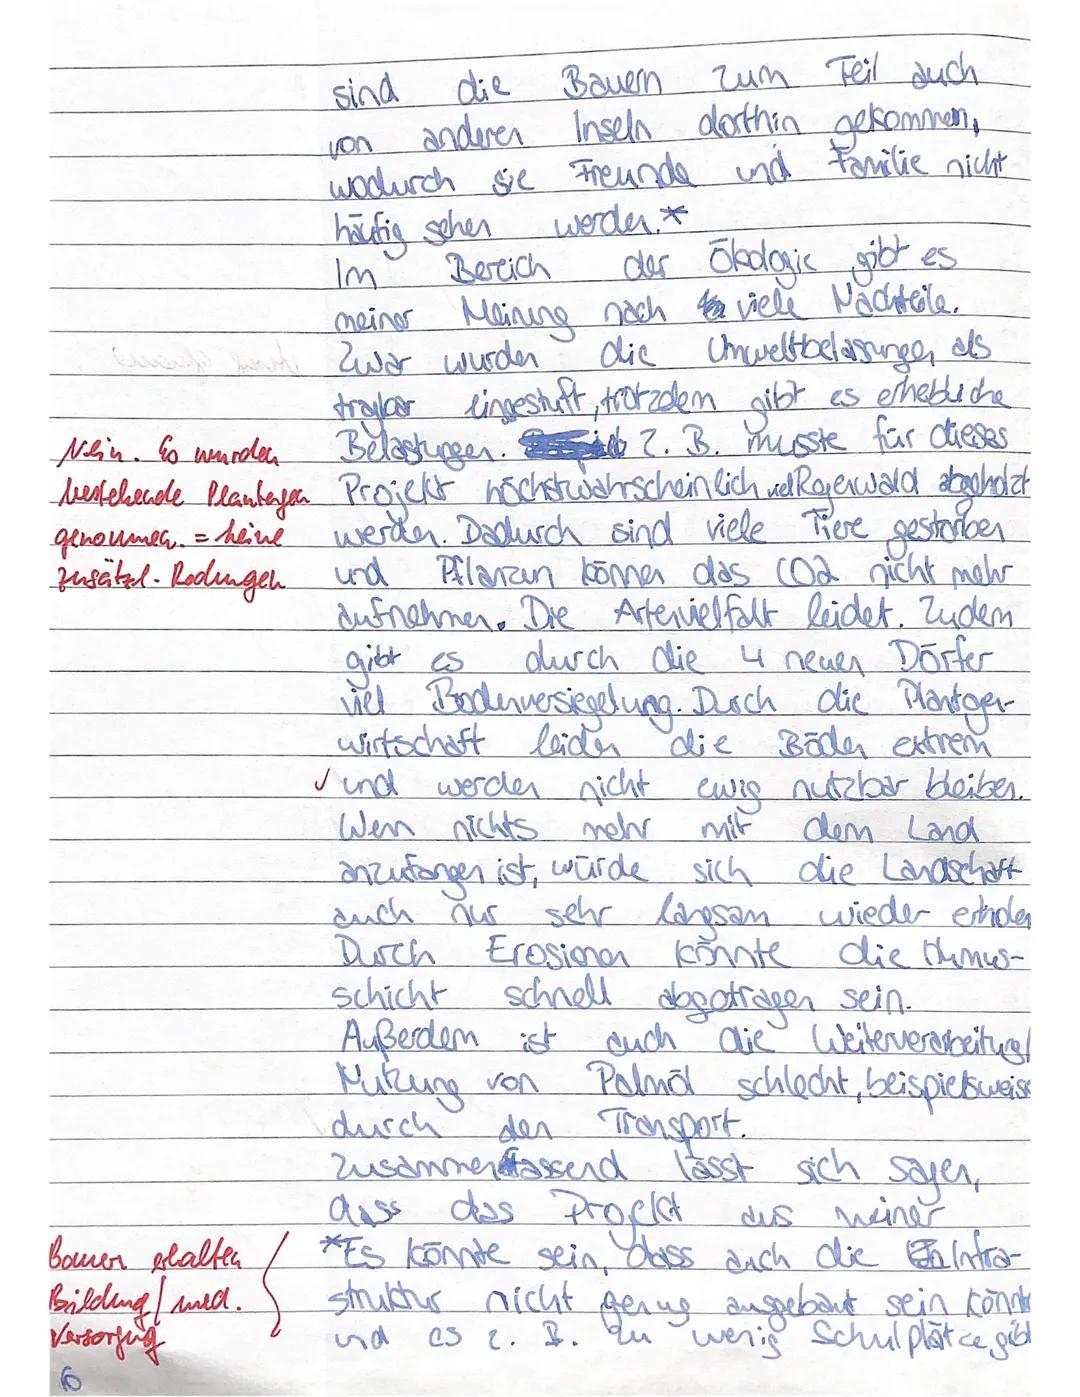 sind die Bauern zum Teil auch
von anderen Inseln dorthin gekommen,
wodurch sie Freunde und Familie nicht
häufig sehen werden.*
Im Bereich der Ökologie gibt es
meiner Meinung nach viele Nachteile.
Zwar wurden die Umweltbelastungen als
tragbar eingestuft, trotzdem gibt es erhebliche
Belastungen. Z. B. musste für dieses
Projekt höchstwahrscheinlich viel Regenwald abgeholzt
werden. Dadurch sind viele Tiere gestorben
und Pflanzen können das CO2 nicht mehr
aufnehmen. Die Artenvielfalt leidet. Zudem
gibt es durch die 4 neuen Dörfer
viel Bodenversiegelung. Durch die Plantagen-
wirtschaft leiden die Böden extrem
und werden nicht ewig nutzbar bleiben.
Wenn nichts mehr mit dem Land
anzufangen ist, würde sich die Landschaft
auch nur sehr langsam wieder erholen
Durch Erosionen könnte die Humus-
schicht schnell abgetragen sein.
Außerdem ist auch die Weiterverarbeitung/
Nutzung von Palmöl schlecht, beispielsweise
durch den Transport.
Zusammenfassend lässt sich sagen,
dass das Projekt aus meiner
*Es könnte sein, dass auch die Infra-
struktur nicht genug ausgebaut sein könnte
und es z. B. zu wenig Schulplätze gibt
Nein. Es wurden
bestehende Plantagen
genommen. = keine
zusätzl. Rodungen
✓
Bauern erhalten
Bildung/med.
Versorgung
6